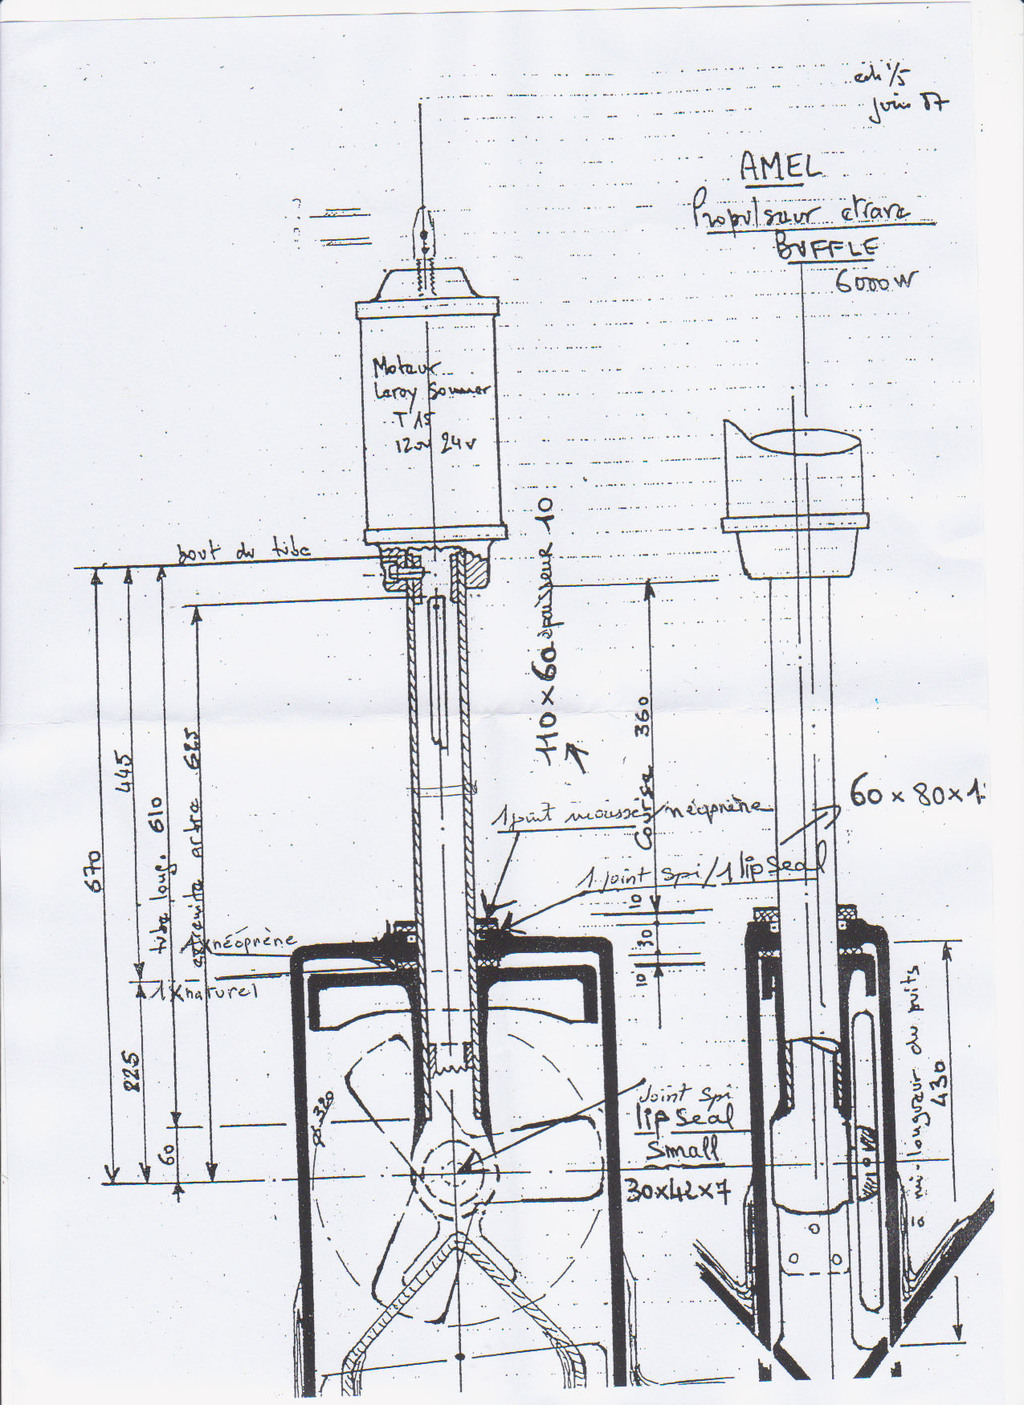 ech 1/5
juin 87
AMEL
Propulseur etrave
BUFFLE
6000W
Moteur
Leroy Sommer
T 15
24v
bout du tube
110 x 60 épaisseur 10
670
445
tube long. 610
extremite arbre 625
225
60
course 360
10
30
10
1 joint mousse/néoprène
60 x 80 x 1
1 joint spi/1 lip seal
1 x néoprène
1 x naturel
ø 320
Joint spi
lip seal
small
30x42x7
mi-longueur du puits
430
10